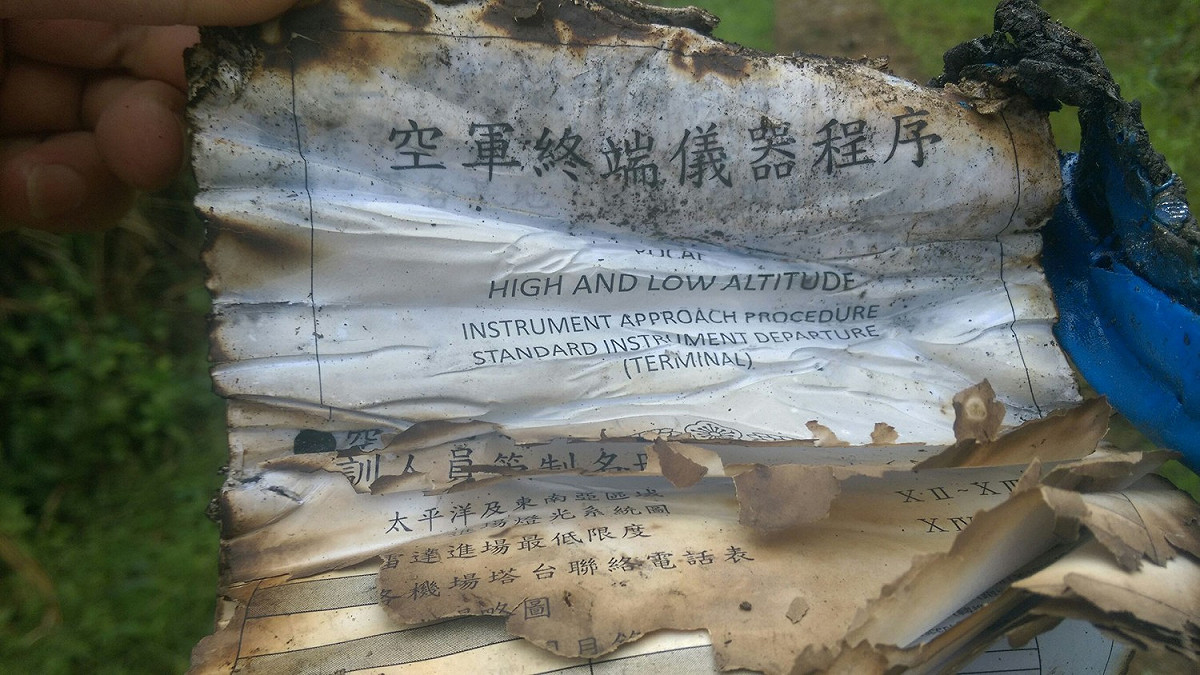 空軍終端儀器程序
HIGH AND LOW ALTITUDE
INSTRUMENT APPROACH PROCEDURE
STANDARD INSTRUMENT DEPARTURE
(TERMINAL)
訓人員管制名冊
太平洋及東南亞區域
場燈光系統圖
雷達進場最低限度
各機場塔台聯絡電話表
略圖